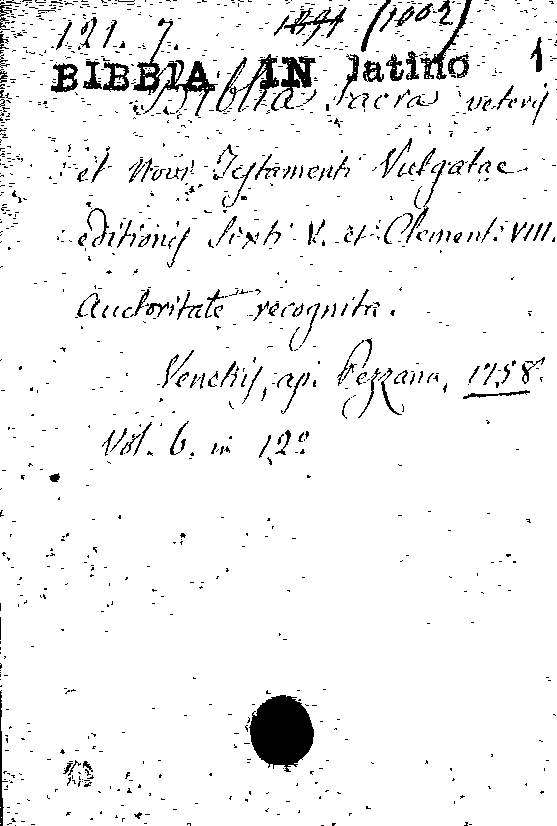 121. 7. 1491 (1002)
BIBBIA IN latino 1
Biblia Sacra veteris
et Novi Testamenti Vulgatae
editionis Sixti V. et Clementi VIII.
Auctoritate recognita.
Venetiis, ap. Pezzana, 1758.
Vol. 6. in 12º